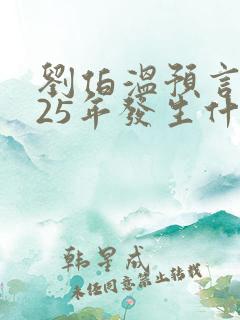 劉伯溫預言
25年發生什
韩星成
未经同意禁止转载